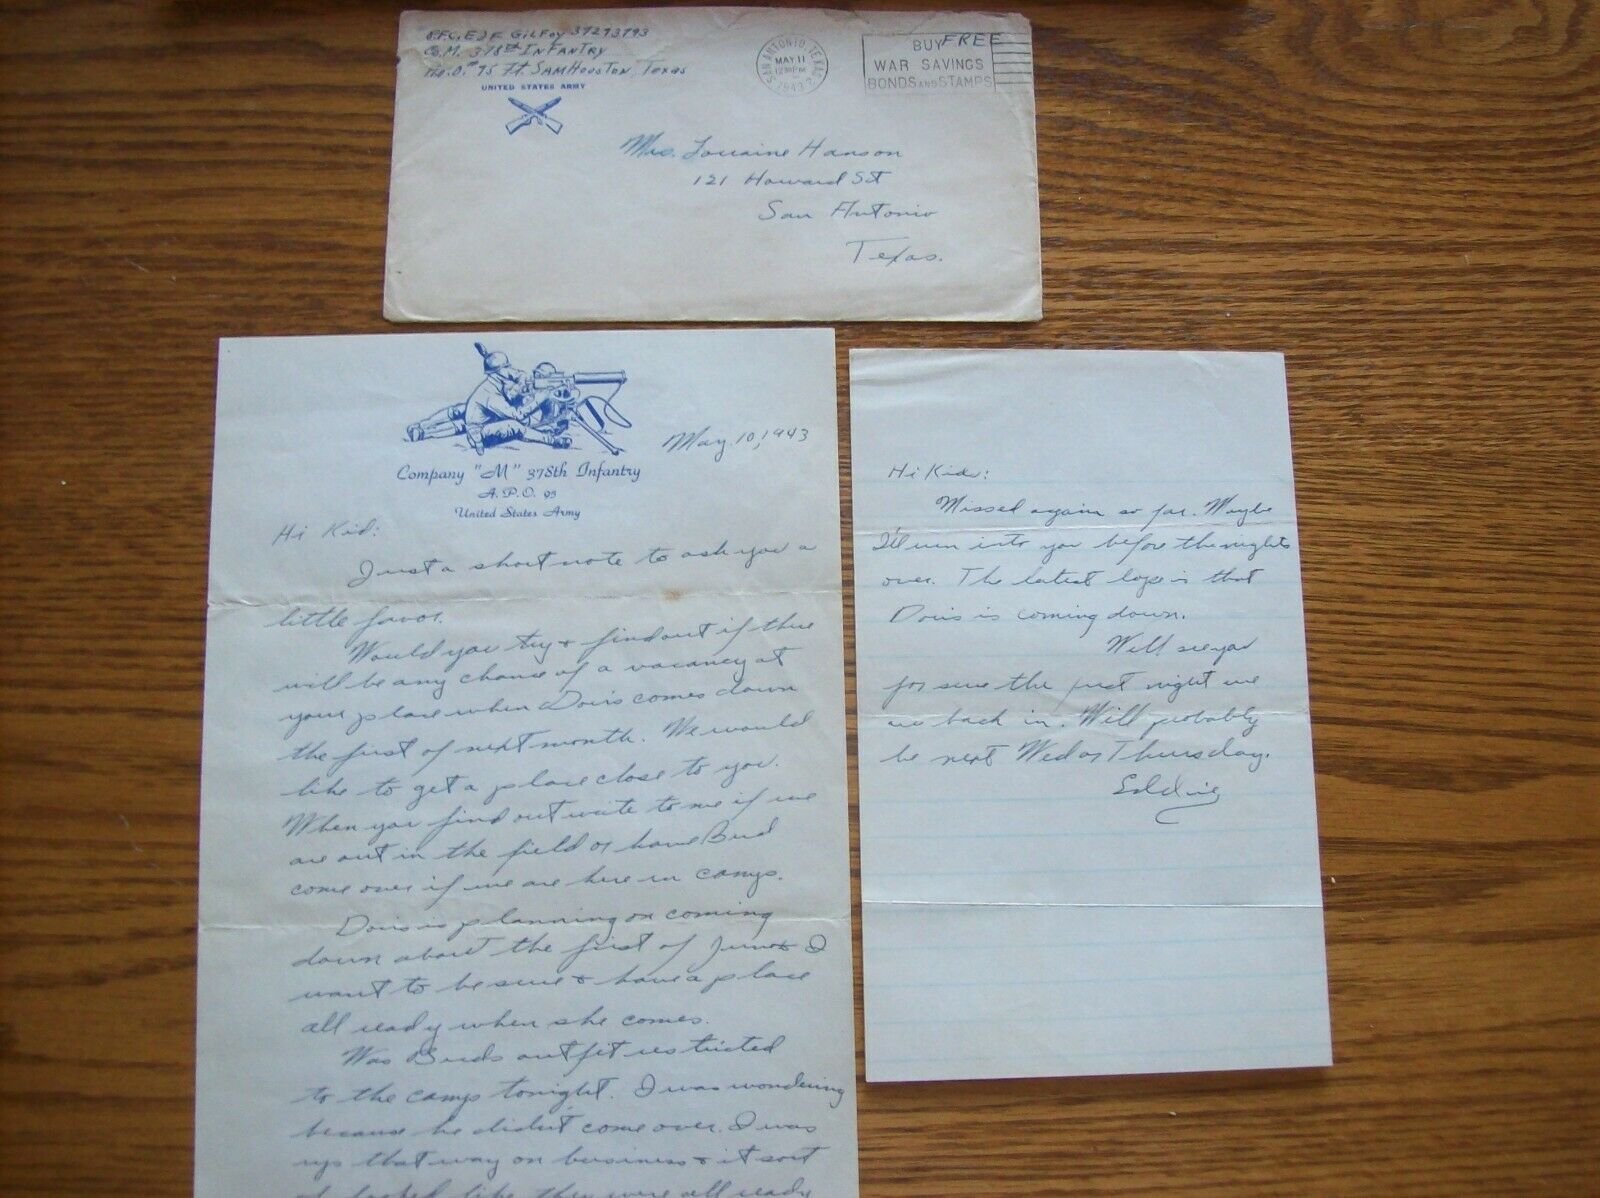 P.F.C. Ed F Gilfoy 37273793
Co. M. 378th Infantry
A.P.O. #95 Ft. Sam Houston, Texas
UNITED STATES ARMY
SAN ANTONIO, TEXAS
MAY 11
1230 PM
1943
FREE
BUY
WAR SAVINGS
BONDS AND STAMPS
Mrs. Lorraine Hanson
121 Howard St
San Antonio
Texas.
May 10, 1943
Company "M" 378th Infantry
A.P.O. 95
United States Army
Hi Kid:
Just a short note to ask you a
little favor.
Would you try & find out if there
will be any chance of a vacancy at
your place when Doris comes down
the first of next month. We would
like to get a place close to you.
When you find out write to me if we
are out in the field or have Bud
come over if we are here in camp.
Doris is planning on coming
down about the first of June & I
want to be sure & have a place
all ready when she comes.
Was Buds outfit restricted
to the camp tonight. I was wondering
because he didn't come over. I was
up that way on business & it sort
of looked like they were all ready
Hi Kid:
Missed again so far. Maybe
I'll run into you before the nights
over. The latest is that
Doris is coming down.
Will see you
for sure the first night we
are back in. Will probably
be next Wed or Thursday.
Eddie